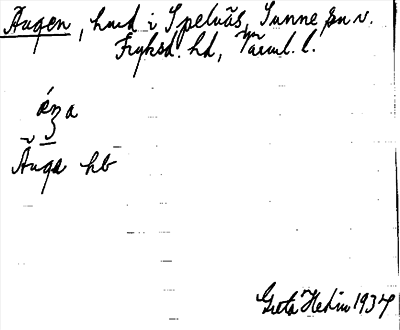 Ängen, hmd i Spelnäs, Sunne sn v.
Fryksd. hd, Värml. l.
äŋa
Änga hb
Greta Hedin 1937